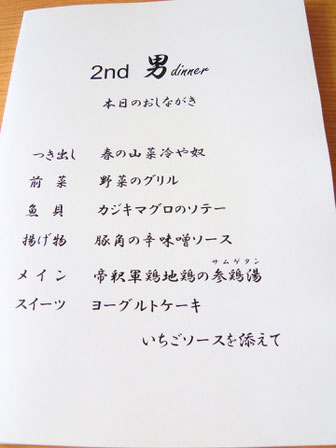 2nd 男 dinner
本日のおしながき
つき出し 春の山菜冷や奴
前菜 野菜のグリル
魚貝 カジキマグロのソテー
揚げ物 豚角の辛味噌ソース
サムゲタン
メイン 帝釈軍鶏地鶏の参鶏湯
スイーツ ヨーグルトケーキ
いちごソースを添えて